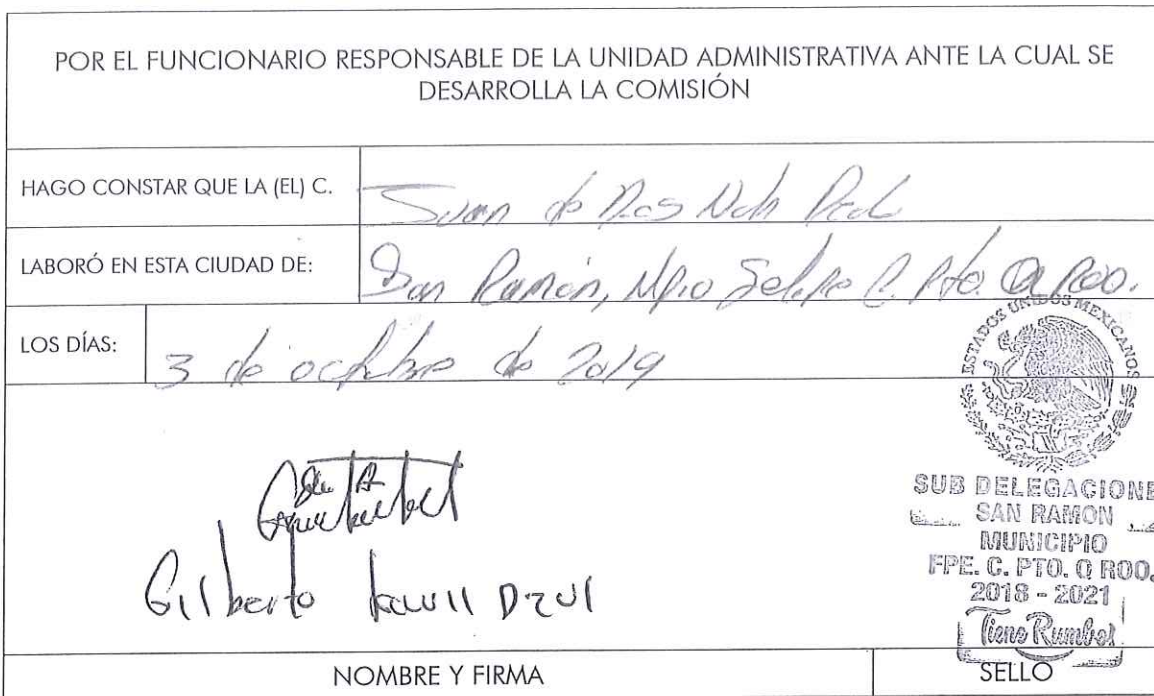 POR EL FUNCIONARIO RESPONSABLE DE LA UNIDAD ADMINISTRATIVA ANTE LA CUAL SE
DESARROLLA LA COMISIÓN
HAGO CONSTAR QUE LA (EL) C.
Juan de Dios
LABORÓ EN ESTA CIUDAD DE:
San Ramón, Mpio Felipe C. Pto. Q Roo.
LOS DÍAS:
3 de octubre de 2019
ESTADOS UNIDOS MEXICANOS
SUB DELEGACIONE
SAN RAMON
MUNICIPIO
FPE. C. PTO. Q ROO.
2018 - 2021
Tiene Rumbo!
Gilberto Kauil Dzul
NOMBRE Y FIRMA
SELLO